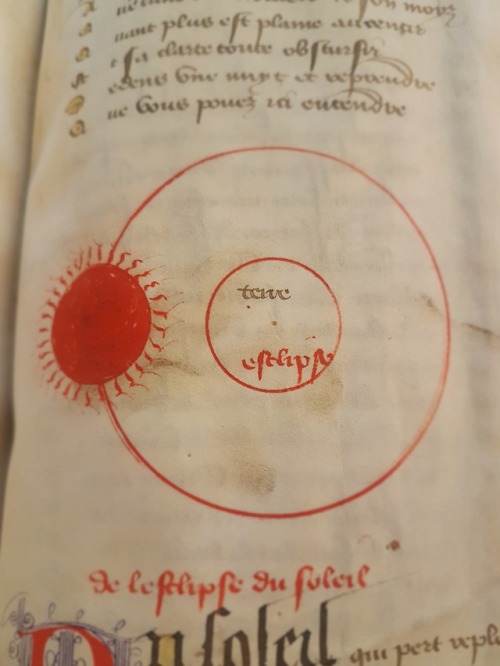 son moys
nant plus est plaine auenir
t sa clarte toute obscursir
edens une nuyt et reprendre
ne vous pouez ici entendre
terre
esclipse
de lesclipse du soleil
Du soleil qui pert